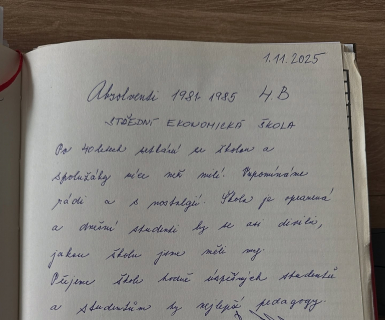 1.11.2025
Absolventi 1981-1985 4B
STŘEDNÍ EKONOMICKÁ ŠKOLA
Po 40 letech setkání se školou a
spolužáky více než milé. Vzpomínáme
rádi a s nostalgií. Škola je opravená
a dnešní studenti by se asi divili,
jakou školu jsme měli my.
Přejeme škole hodně úspěšných studentů
a studentům ty nejlepší pedagogy.